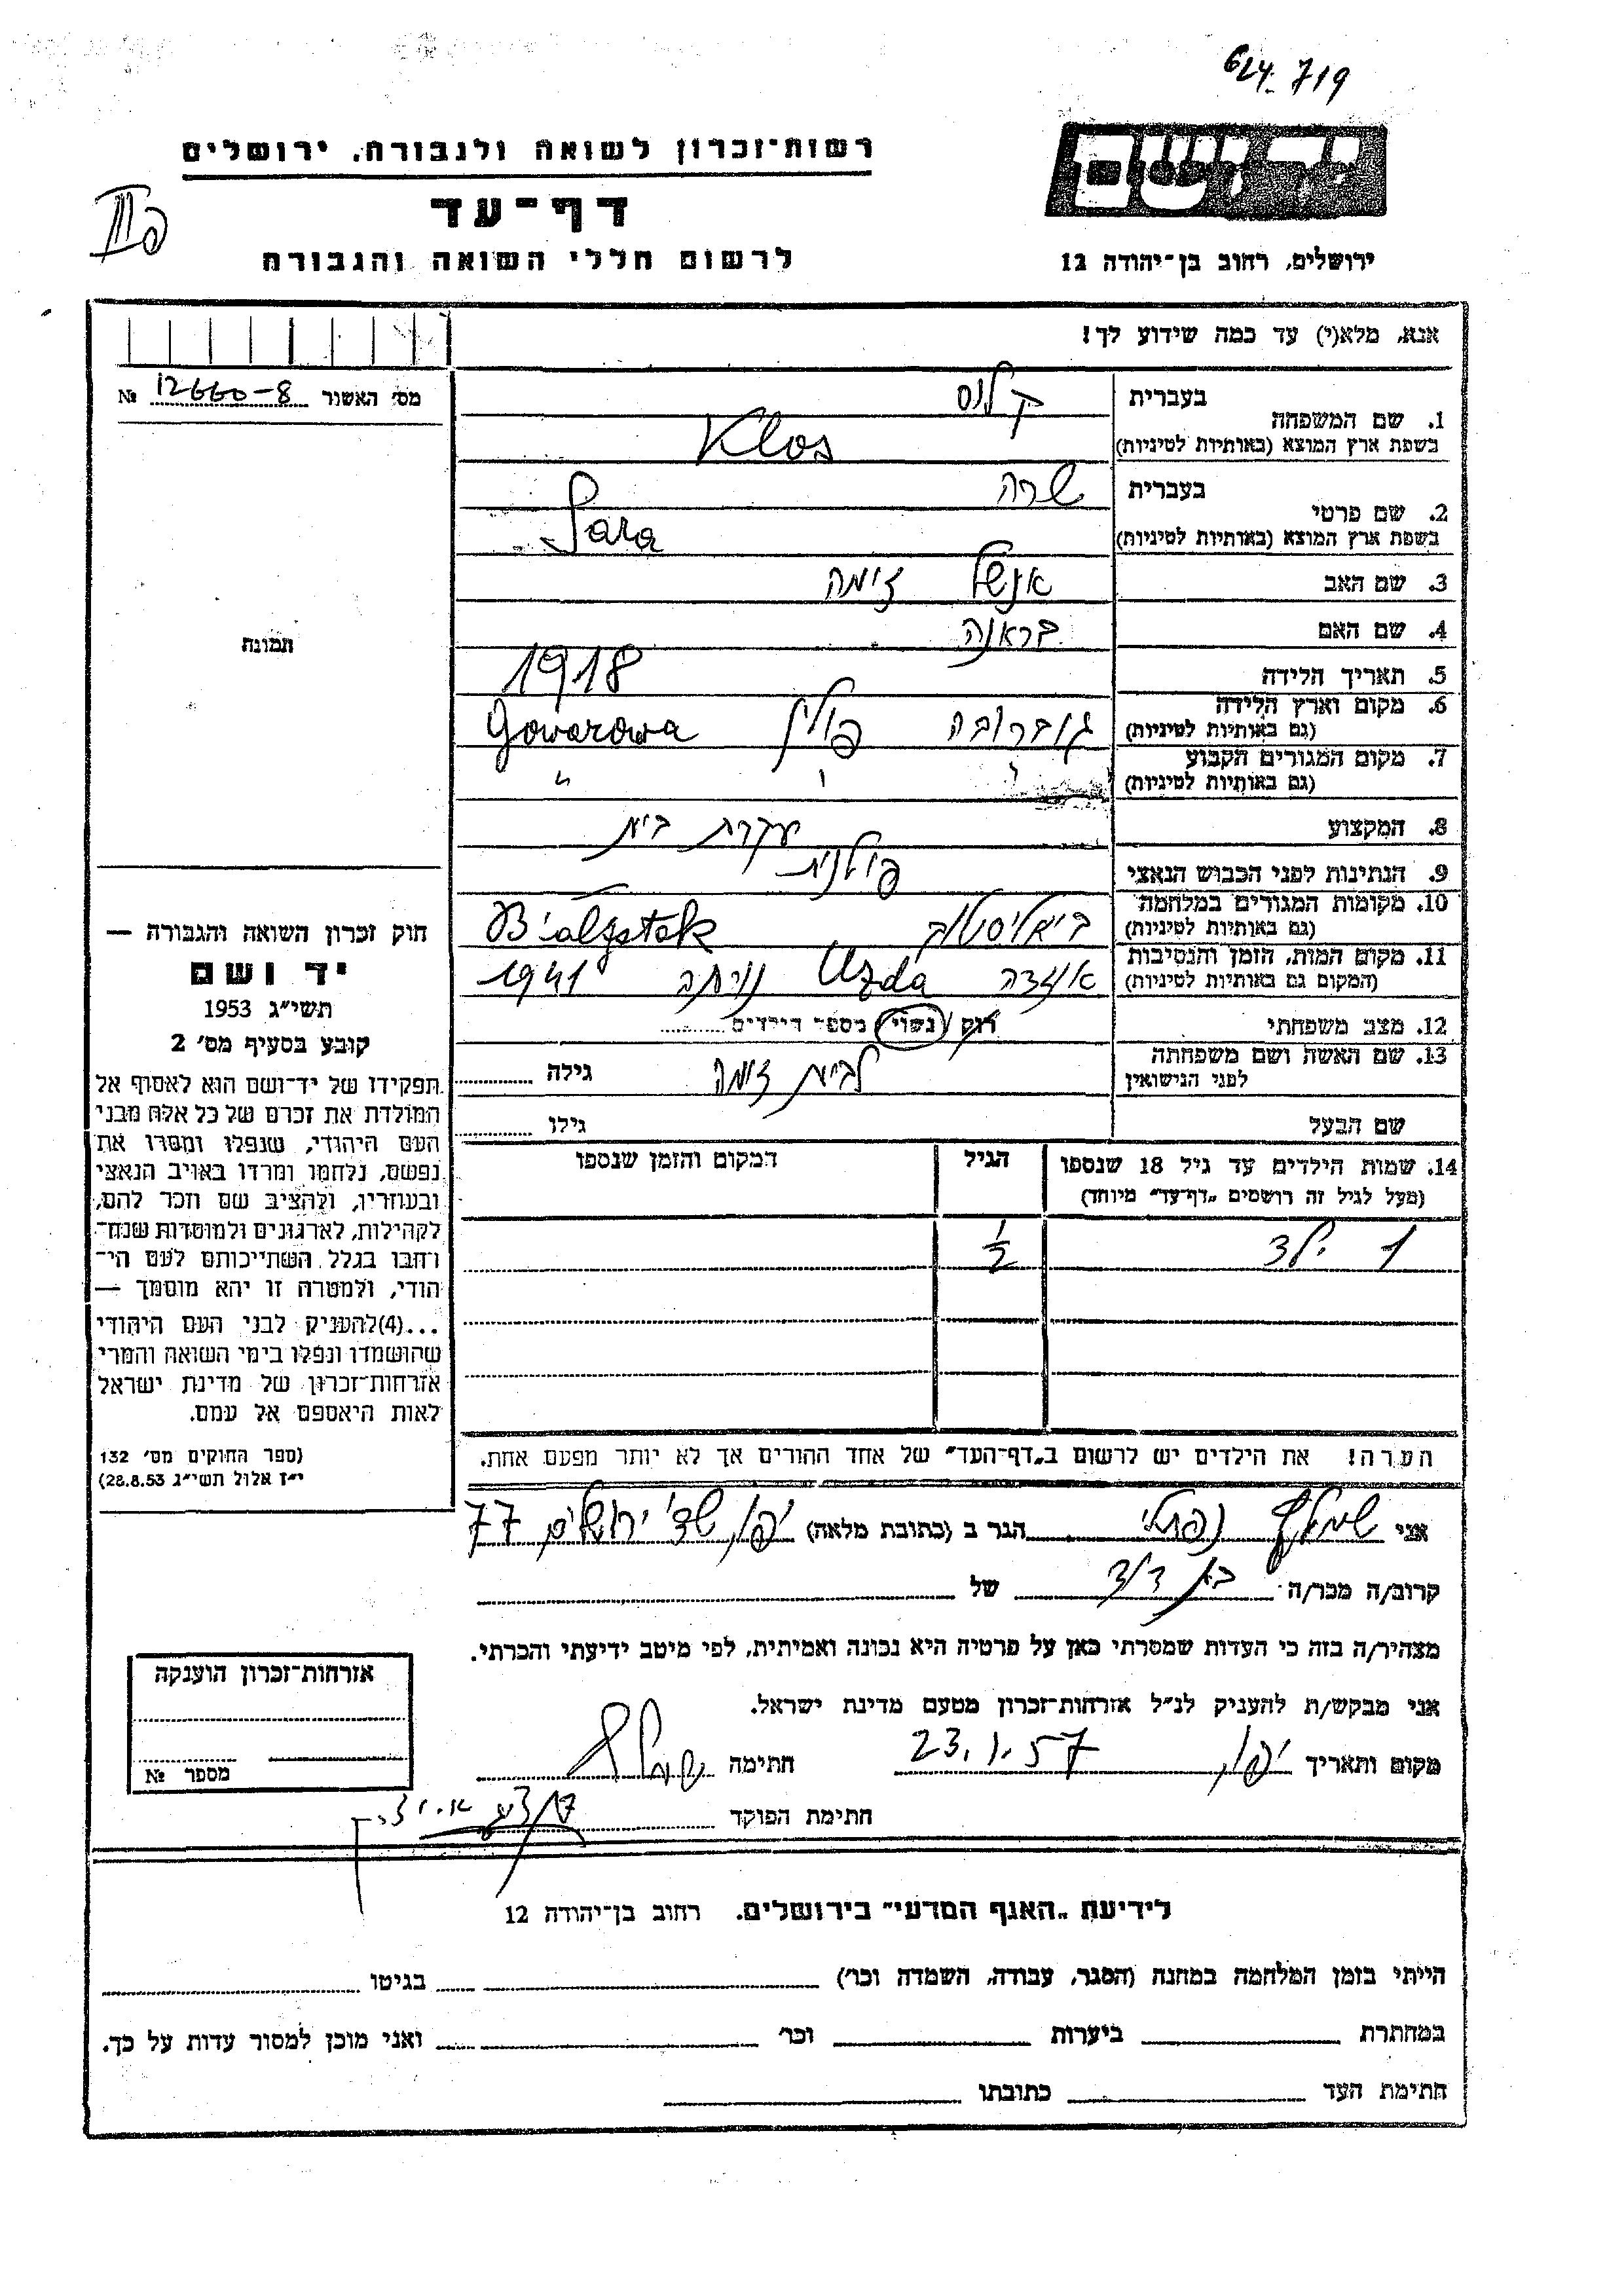 624-719
רשות-זכרון לשואה ולגבורה, ירושלים
יד ושם
דף-עד
לרשום חללי השואה והגבורה
ירושלים, רחוב בן-יהודה 12
אנא, מלא(י) עד כמה שידוע לך!
מס׳ האשור 12660-8 №
בעברית קלוס
1. שם המשפחה
בשפת ארץ המוצא (באותיות לטיניות) Klos
בעברית שרה
2. שם פרטי
בשפת ארץ המוצא (באותיות לטיניות) Sara
3. שם האב אנשל זימה
4. שם האם בראנה
תמונה
5. תאריך הלידה 1918
6. מקום וארץ הלידה גוברובה פולין Goworowa
(גם באותיות לטיניות)
7. מקום המגורים הקבוע " " "
(גם באותיות לטיניות)
8. המקצוע עקרת בית
9. הנתינות לפני הכבוש הנאצי פולנית
10. מקומות המגורים במלחמה ביאליסטוק Bialystok
(גם באותיות לטיניות)
11. מקום המות, הזמן והנסיבות אוזדה Uzda נורתה 1941
(המקום גם באותיות לטיניות)
12. מצב משפחתי רוק / נשוי / מספר הילדים
13. שם האשה ושם משפחתה לבית זימה גילה
לפני הנישואין
שם הבעל גילו
14. שמות הילדים עד גיל 18 שנספו הגיל המקום והזמן שנספו
(מעל לגיל זה רושמים "דף-עד" מיוחד)
1 ילד 1/2
הערה! את הילדים יש לרשום ב"דף-העד" של אחד ההורים אך לא יותר מפעם אחת.
חוק זכרון השואה והגבורה —
יד ושם
תשי"ג 1953
קובע בסעיף מס׳ 2
תפקידו של יד-ושם הוא לאסוף אל
המולדת את זכרם של כל אלה מבני
העם היהודי, שנפלו ומסרו את
נפשם, נלחמו ומרדו באויב הנאצי
ובעוזריו, ולהציב שם וזכר להם,
לקהילות, לארגונים ולמוסדות שנח-
רבו בגלל השתייכותם לעם הי-
הודי, ולמטרה זו יהא מוסמך —
...(4)להעניק לבני העם היהודי
שהושמדו ונפלו בימי השואה והמרי
אזרחות-זכרון של מדינת ישראל
לאות היאספם אל עמם.
(ספר החוקים מס׳ 132
י"ז אלול תשי"ג 28.8.53)
אני נפתלי הגר ב (כתובת מלאה) יפו שד׳ ירושלים 77
קרוב/ה מכר/ה בן דוד של
מצהיר/ה בזה כי העדות שמסרתי כאן על פרטיה היא נכונה ואמיתית, לפי מיטב ידיעתי והכרתי.
אני מבקש/ת להעניק לנ"ל אזרחות-זכרון מטעם מדינת ישראל.
מקום ותאריך יפו, 23.1.57 חתימה
חתימת הפוקד
אזרחות-זכרון הוענקה
מספר №
לידיעת "האגף המדעי" בירושלים. רחוב בן-יהודה 12
הייתי בזמן המלחמה במחנה (הסגר, עבודה, השמדה וכר׳) בגיטו
במחתרת ביערות וכר׳ ואני מוכן למסור עדות על כך.
חתימת העד כתובתו